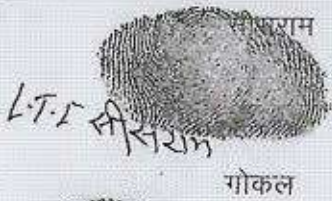 सीसराम
L.T.I सीसराम
गोकल